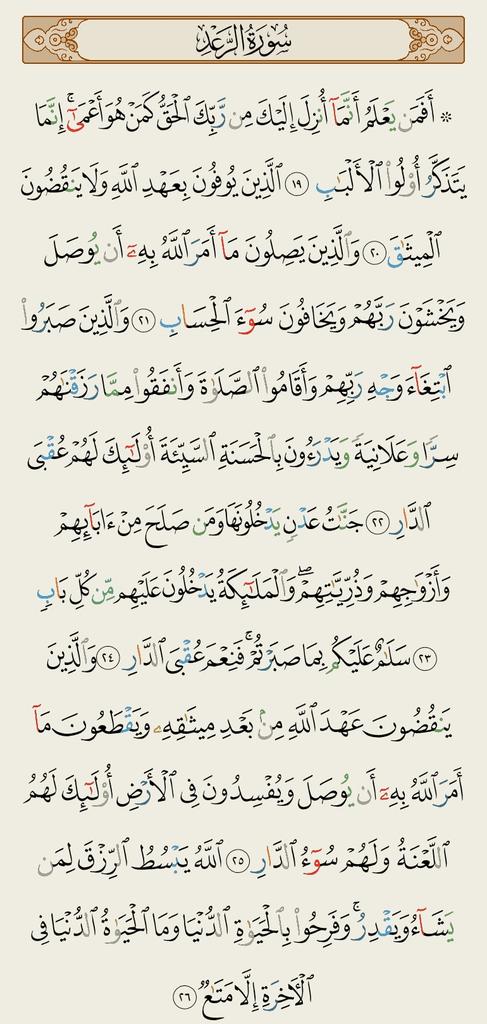 سُورَةُ الرَّعْدِ
۞ أَفَمَن يَعْلَمُ أَنَّمَآ أُنزِلَ إِلَيْكَ مِن رَّبِّكَ الْحَقُّ كَمَنْ هُوَ أَعْمَىٰٓ ۚ إِنَّمَا
يَتَذَكَّرُ أُوْلُواْ الْأَلْبَٰبِ ١٩ الَّذِينَ يُوفُونَ بِعَهْدِ اللَّهِ وَلَا يَنقُضُونَ
الْمِيثَٰقَ ٢٠ وَالَّذِينَ يَصِلُونَ مَآ أَمَرَ اللَّهُ بِهِۦٓ أَن يُوصَلَ
وَيَخْشَوْنَ رَبَّهُمْ وَيَخَافُونَ سُوٓءَ الْحِسَابِ ٢١ وَالَّذِينَ صَبَرُواْ
ابْتِغَآءَ وَجْهِ رَبِّهِمْ وَأَقَامُواْ الصَّلَوٰةَ وَأَنفَقُواْ مِمَّا رَزَقْنَٰهُمْ
سِرًّا وَعَلَانِيَةً وَيَدْرَءُونَ بِالْحَسَنَةِ السَّيِّئَةَ أُوْلَٰٓئِكَ لَهُمْ عُقْبَى
الدَّارِ ٢٢ جَنَّٰتُ عَدْنٍ يَدْخُلُونَهَا وَمَن صَلَحَ مِنْ ءَابَآئِهِمْ
وَأَزْوَٰجِهِمْ وَذُرِّيَّٰتِهِمْ ۖ وَالْمَلَٰٓئِكَةُ يَدْخُلُونَ عَلَيْهِم مِّن كُلِّ بَابٍ
٢٣ سَلَٰمٌ عَلَيْكُم بِمَا صَبَرْتُمْ ۚ فَنِعْمَ عُقْبَى الدَّارِ ٢٤ وَالَّذِينَ
يَنقُضُونَ عَهْدَ اللَّهِ مِنۢ بَعْدِ مِيثَٰقِهِۦ وَيَقْطَعُونَ مَآ
أَمَرَ اللَّهُ بِهِۦٓ أَن يُوصَلَ وَيُفْسِدُونَ فِي الْأَرْضِ أُوْلَٰٓئِكَ لَهُمُ
اللَّعْنَةُ وَلَهُمْ سُوٓءُ الدَّارِ ٢٥ اللَّهُ يَبْسُطُ الرِّزْقَ لِمَن
يَشَآءُ وَيَقْدِرُ ۚ وَفَرِحُواْ بِالْحَيَوٰةِ الدُّنْيَا وَمَا الْحَيَوٰةُ الدُّنْيَا فِي
الْأٓخِرَةِ إِلَّا مَتَٰعٌ ٢٦